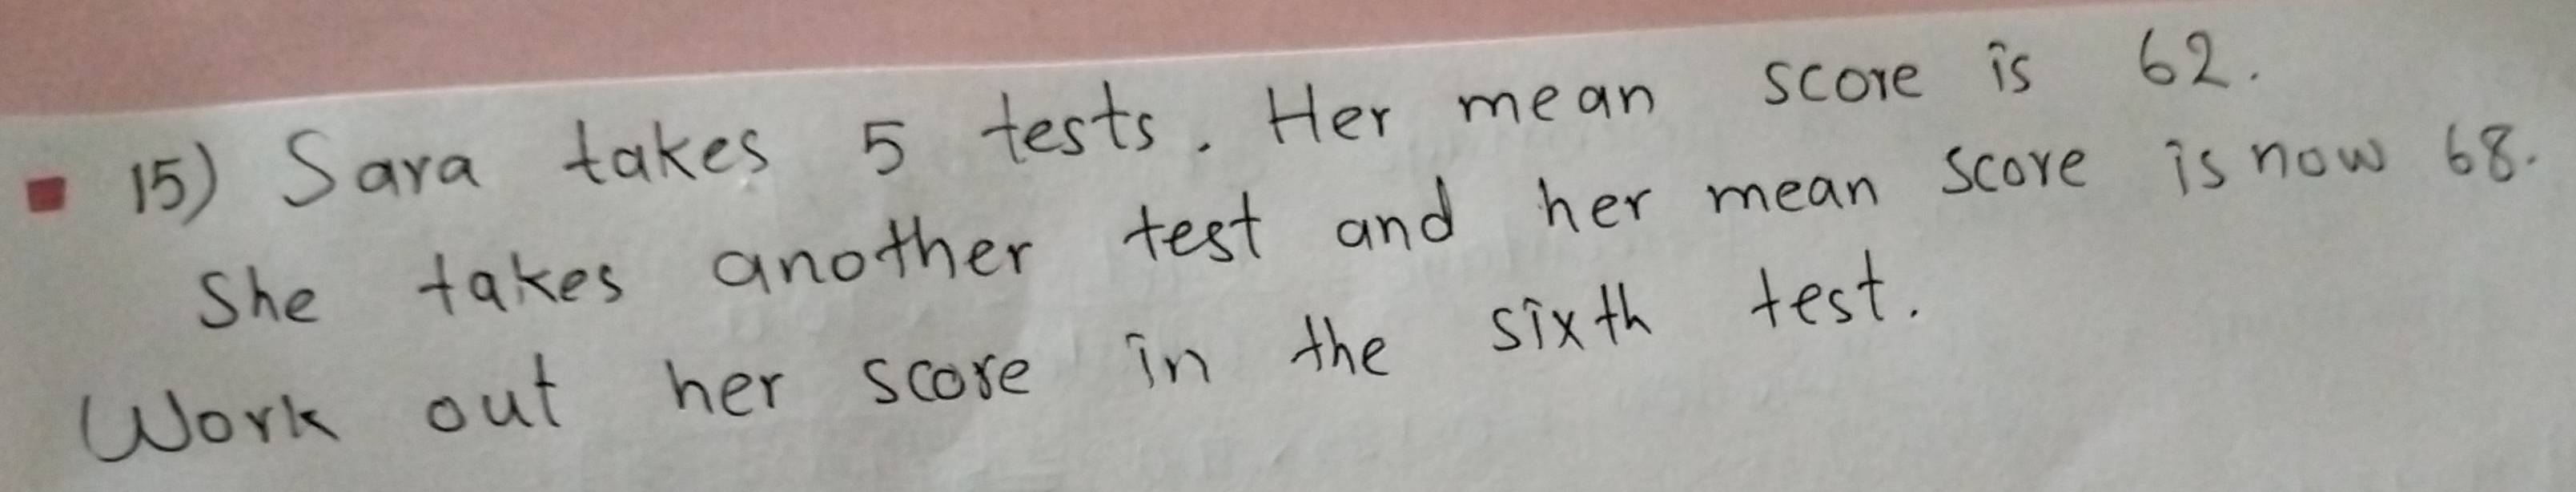 15) Sara takes 5 tests. Her mean score is 62.
She takes another test and her mean score is now 68.
Work out her score in the sixth test.